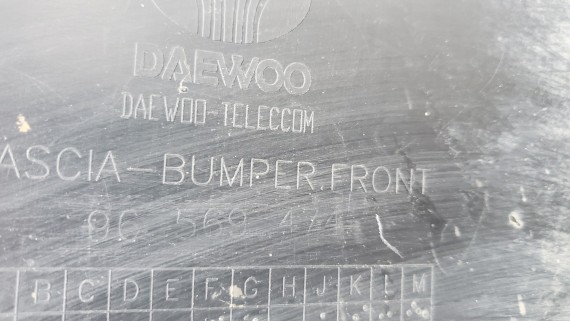 DAEWOO
DAEWOO-TELECOM
ASCIA-BUMPER.FRONT
96 569 474
B C D E F G H J K L M